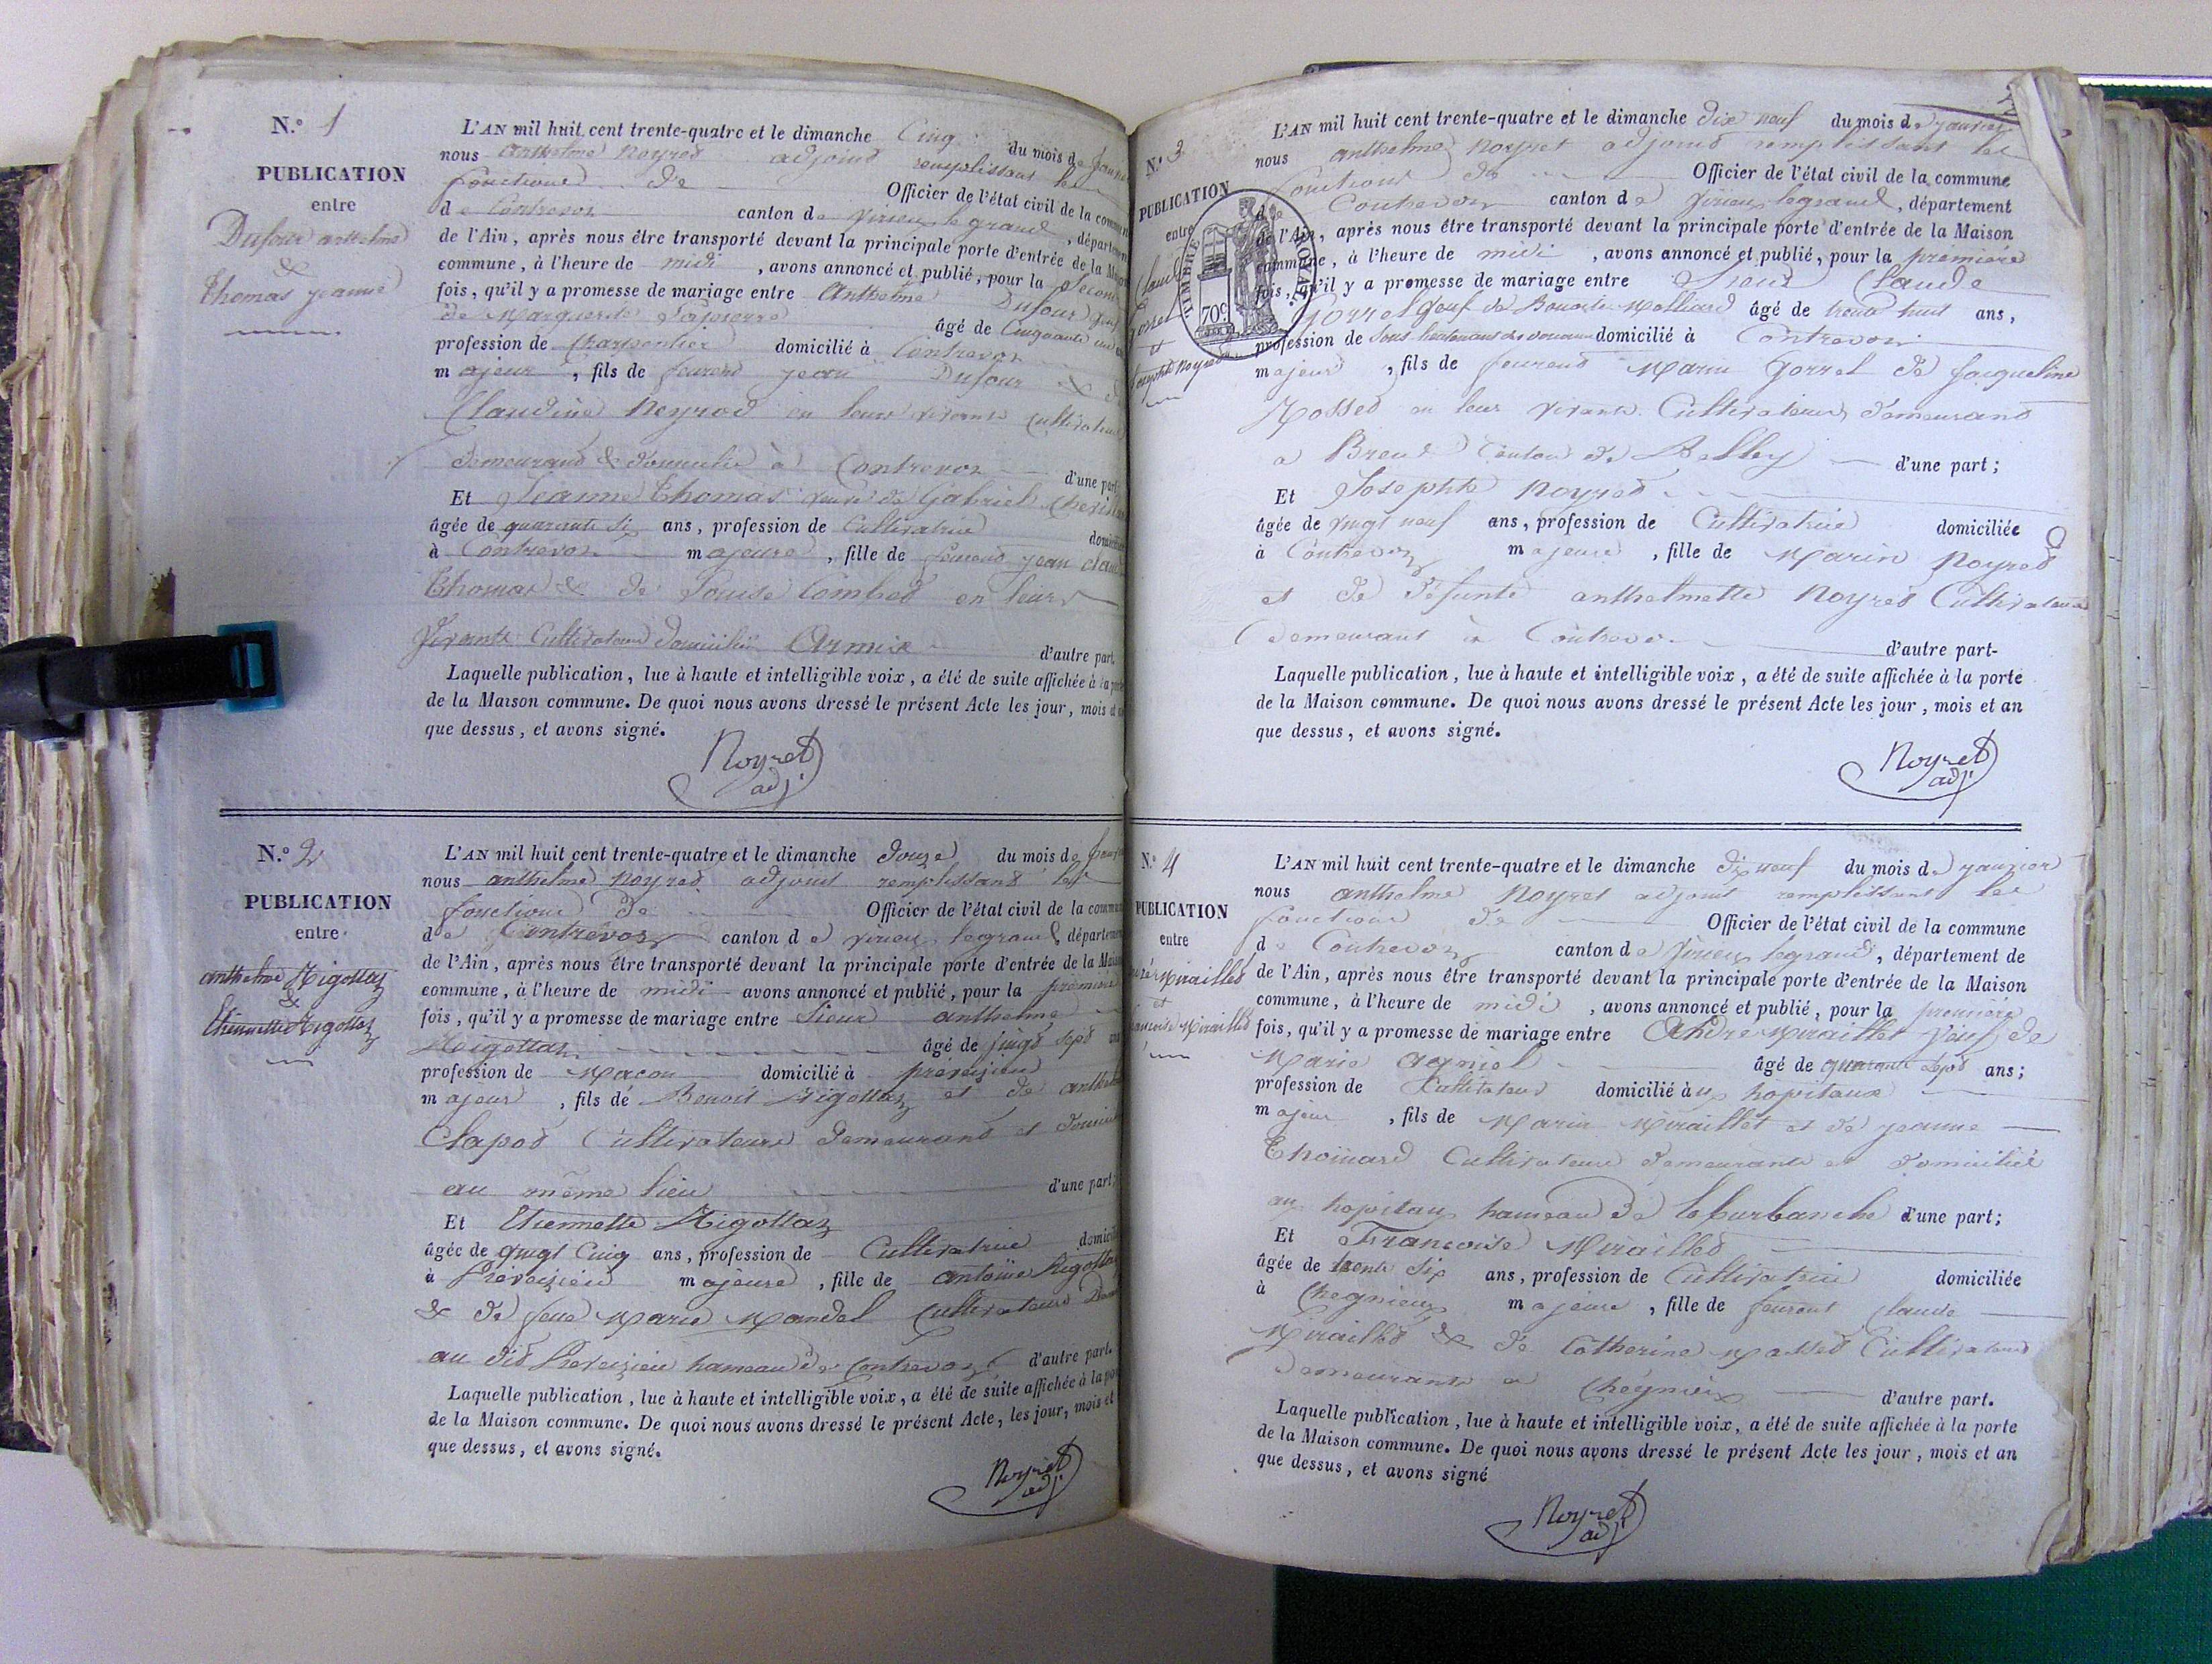 N.° 1
PUBLICATION
entre
Dufour anthelme
&
Thomas jeanne
L'AN mil huit cent trente-quatre et le dimanche Cinq du mois de
nous anthelme Noyret adjoint remplissant les
fonctions de Officier de l'état civil de la
de Contrevoz canton de virieu le grand, départem
de l'Ain, après nous être transporté devant la principale porte d'entrée de la
commune, à l'heure de midi, avons annoncé et publié, pour la
fois, qu'il y a promesse de mariage entre Anthelme Dufour
de Marguerite âgé de Cinquante
profession de Charpentier domicilié à Contrevoz
majeur, fils de feurent jean Dufour &
Claudine Neyrod en leurs vivants Cultivateurs
demeurant & domicilié à Contrevoz d'une part
Et Jeanne Thomas veuve de Gabriel
âgée de quarante six ans, profession de Cultivatrice
à Contrevoz majeure, fille de jean
Thomas & de Louise Combet en leurs
Vivants Cultivateurs domiciliés Armix d'autre part.
Laquelle publication, lue à haute et intelligible voix, a été de suite affichée à la
de la Maison commune. De quoi nous avons dressé le présent Acte les jour, mois et
que dessus, et avons signé.
Noyret
adj
N.° 2
PUBLICATION
entre
anthelme Rigottaz
&
Ethiennette Rigottaz
L'AN mil huit cent trente-quatre et le dimanche douze du mois de
nous anthelme Noyret adjoint remplissant les
fonctions de Officier de l'état civil de la
de Contrevoz canton de virieu le grand, départem
de l'Ain, après nous être transporté devant la principale porte d'entrée de la
commune, à l'heure de midi avons annoncé et publié, pour la
fois, qu'il y a promesse de mariage entre Sieur anthelme
Rigottaz âgé de vingt sept
profession de Macon domicilié à préveyzieu
majeur, fils de Benoit Rigottaz et de
Clapot Cultivateurs demeurant et
au même lieu d'une part;
Et Etiennette Rigottaz
âgée de vingt Cinq ans, profession de Cultivatrice
à Préveizieu majeure, fille de antoine Rigottaz
& de feue Marie Mandel Cultivateurs
au dit Préveizieu hameau de Contrevoz d'autre part.
Laquelle publication, lue à haute et intelligible voix, a été de suite affichée à la
de la Maison commune. De quoi nous avons dressé le présent Acte, les jour, mois et
que dessus, et avons signé.
Noyret
adj
N.° 3
PUBLICATION
entre
Gorrel
et
TIMBRE ROYAL
70c
L'AN mil huit cent trente-quatre et le dimanche dix neuf du mois de janvier
nous anthelme Noyret adjoint remplissant les
fonctions de Officier de l'état civil de la commune
de Contrevoz canton de Virieu le grand, département
de l'Ain, après nous être transporté devant la principale porte d'entrée de la Maison
commune, à l'heure de midi, avons annoncé et publié, pour la première
fois, qu'il y a promesse de mariage entre Sieur Claude
Gorrel veuf de Benoite Molliard âgé de trente huit ans,
profession de Sous lieutenant des domicilié à Contrevoz
majeur, fils de feurent Marin Gorrel & Jacqueline
Rosset en leurs vivants Cultivateurs demeurant
a Brens Canton de Belley d'une part;
Et Josephte Noyret
âgée de vingt neuf ans, profession de Cultivatrice domiciliée
à Contrevoz majeure, fille de Marin Noyret
et de défunte anthelmette Noyret Cultivateurs
demeurant à Contrevoz d'autre part-
Laquelle publication, lue à haute et intelligible voix, a été de suite affichée à la porte
de la Maison commune. De quoi nous avons dressé le présent Acte les jour, mois et an
que dessus, et avons signé.
Noyret
adj
N.° 4
PUBLICATION
entre
Miraillet
et
Miraillet
L'AN mil huit cent trente-quatre et le dimanche dix neuf du mois de janvier
nous anthelme Noyret adjoint remplissant les
fonctions de Officier de l'état civil de la commune
de Contrevoz canton de Virieu le grand, département de
de l'Ain, après nous être transporté devant la principale porte d'entrée de la Maison
commune, à l'heure de midi, avons annoncé et publié, pour la première
fois, qu'il y a promesse de mariage entre André Miraillet Veuf de
Marie âgé de quarante sept ans;
profession de Cultivateur domicilié aux hopitaux
majeur, fils de Marin Miraillet et de jeanne
Cultivateurs demeurants et domiciliés
aux hopitaux hameau de la burbanche d'une part;
Et Francoise Miraillet
âgée de trente six ans, profession de Cultivatrice domiciliée
à Chegnieu majeure, fille de feurent Claude
Miraillet & de Catherine Masset Cultivateurs
demeurants a Chégnieu d'autre part.
Laquelle publication, lue à haute et intelligible voix, a été de suite affichée à la porte
de la Maison commune. De quoi nous avons dressé le présent Acte les jour, mois et an
que dessus, et avons signé
Noyret
adj